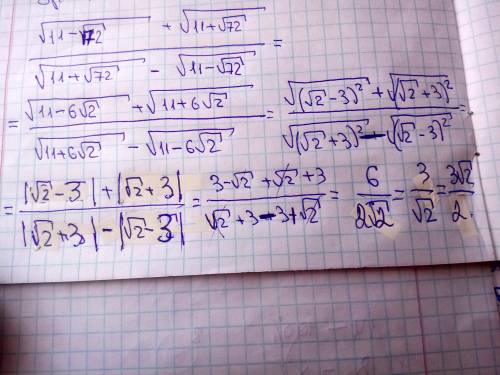 (√(11-√72) + √(11+√72)) / (√(11+√72) - √(11-√72)) =
= (√(11-6√2) + √(11+6√2)) / (√(11+6√2) - √(11-6√2)) = (√((√2-3)²) + √((√2+3)²)) / (√((√2+3)²) - √((√2-3)²)) =
= (|√2-3| + |√2+3|) / (|√2+3| - |√2-3|) = (3-√2+√2+3) / (√2+3-3+√2) = 6 / (2√2) = 3 / √2 = 3√2 / 2